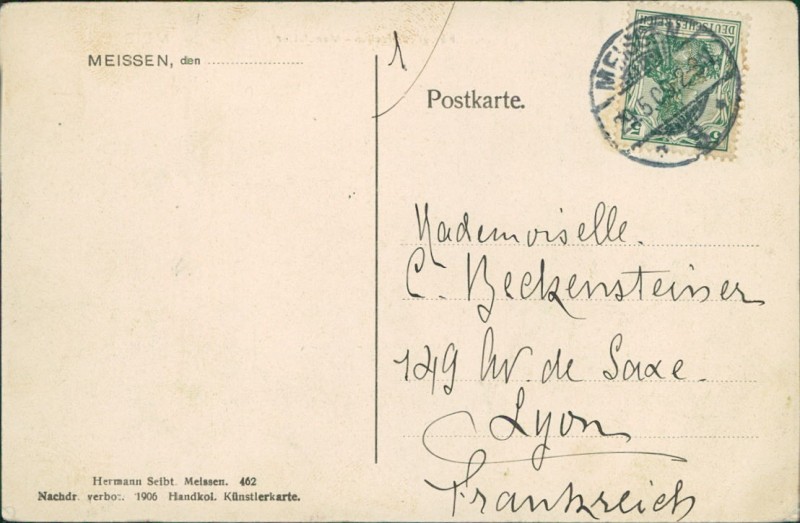 MEISSEN, den
1
Postkarte.
DEUTSCHES REICH
MEISSEN
5
Mademoiselle.
C. Beckensteiner
149 Av. de Saxe.
Lyon
Frankreich
Hermann Seibt. Meissen. 462
Nachdr. verbot. 1906 Handkol. Künstlerkarte.